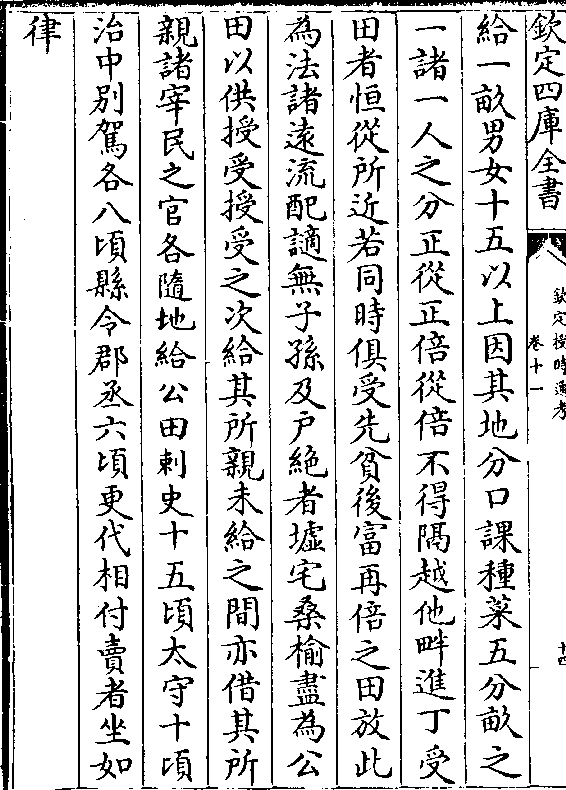 欽定四庫全書
欽定授時通考
卷十一
十四
給一畝男女十五以上因其地分口課種菜五分畝之
一諸一人之分正從正倍從倍不得隔越他畔進丁受
田者恒從所近若同時俱受先貧後富再倍之田放此
為法諸逺流配謫無子孫及户絶者墟宅桑榆盡為公
田以供授受授受之次給其所親未給之間亦借其所
親諸宰民之官各隨地給公田刺史十五頃太守十頃
治中別駕各八頃縣令郡丞六頃更代相付賣者坐如
律